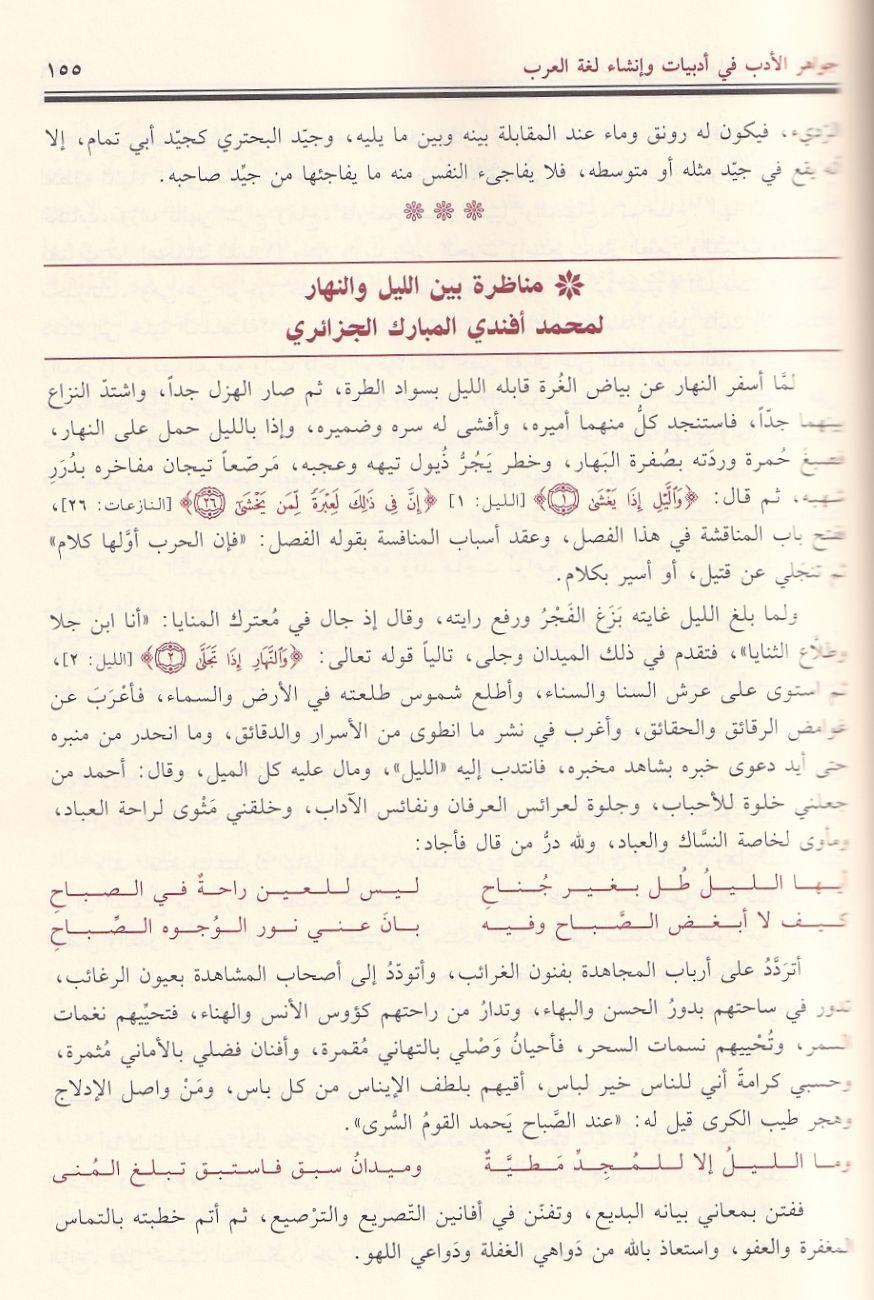 جواهر الأدب في أدبيات وإنشاء لغة العرب
١٥٥
الرديء، فيكون له رونق وماء عند المقابلة بينه وبين ما يليه، وجيّد البحتري كجيّد أبي تمام، إلا
أنه يقع في جيّد مثله أو متوسطه، فلا يفاجىء النفس منه ما يفاجئها من جيِّد صاحبه.
مناظرة بين الليل والنهار
لمحمد أفندي المبارك الجزائري
لمَّا أسفر النهار عن بياض الغُرة قابله الليل بسواد الطرة، ثم صار الهزل جداً، واشتدّ النزاع
بينهما جدّاً، فاستنجد كلُّ منهما أميره، وأفشى له سره وضميره، وإذا بالليل حمل على النهار،
فصبغَ حُمرة وردَته بصُفرة البَهار، وخطر يَجُرُّ ذُيول تيهه وعجبه، مَرصّعاً تيجان مفاخره بدُرَرِ
شهبه، ثم قال: ﴿وَٱلَّيْلِ إِذَا يَغْشَىٰ ١﴾ [الليل: ١] ﴿إِنَّ فِى ذَٰلِكَ لَعِبْرَةً لِّمَن يَخْشَىٰٓ ٢٦﴾ [النازعات: ٢٦]،
ففتح باب المناقشة في هذا الفصل، وعقد أسباب المنافسة بقوله الفصل: «فإن الحرب أوَّلها كلام»
ثم تنجَلي عن قتيل، أو أسير بكلام.
ولما بلغ الليل غايته بَزَغ الفَجْرُ ورفع رايته، وقال إذ جال في مُعترك المنايا: «أنا ابن جلا
وطلَّاع الثنايا»، فتقدم في ذلك الميدان وجلى، تالياً قوله تعالى: ﴿وَٱلنَّهَارِ إِذَا تَجَلَّىٰ ٢﴾ [الليل: ٢]،
ثم استوى على عرش السنا والسناء، وأطلع شموس طلعته في الأرض والسماء، فأعْرَبَ عن
غوامض الرقائق والحقائق، وأغرب في نشر ما انطوى من الأسرار والدقائق، وما انحدر من منبره
حتى أيد دعوى خبره بشاهد مخبره، فانتدب إليه «الليل»، ومال عليه كل الميل، وقال: أحمد من
جعلني خلوة للأحباب، وجلوة لعرائس العرفان ونفائس الآداب، وخلقني مَثْوى لراحة العباد،
ومأوى لخاصة النسَّاك والعباد، ولله درُّ من قال فأجاد:
أيـهـا الليلُ طُل بغير جُناحِ ليس للعين راحةٌ في الصباحِ
كيف لا أبغض الصَّباح وفيه بانَ عني نور الوُجوه الصِّباحِ
أترَدَّدُ على أرباب المجاهدة بفنون الغرائب، وأتودّدُ إلى أصحاب المشاهدة بعيون الرغائب،
تدور في ساحتهم بدورُ الحسن والبهاء، وتدارُ من راحتهم كؤوس الأنس والهناء، فتحيِّيهم نغمات
السمر، وتُحْييهم نسمات السحر، فأحيانُ وَصْلي بالتهاني مُقمرة، وأفنان فضلي بالأماني مُثمرة،
وحسبي كرامةً أني للناس خير لباس، أقيهم بلطف الإيناس من كل باس، ومَنْ واصل الإدلاج
وهجر طيب الكرى قيل له: «عند الصَّباح يَحمد القومُ السُّرى».
وما الليلُ إلا للمُجِدِّ مَطيَّةٌ وميدانُ سبق فاستبق تبلغ المُنى
ففتن بمعاني بيانه البديع، وتفنّن في أفانين التّصريع والترْصيع، ثم أتم خطبته بالتماس
المغفرة والعفو، واستعاذ بالله من دَواهي الغفلة ودَواعي اللهو.